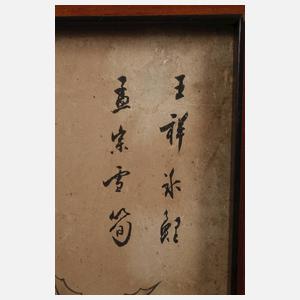 王祥冰鯉
孟宗雪筍